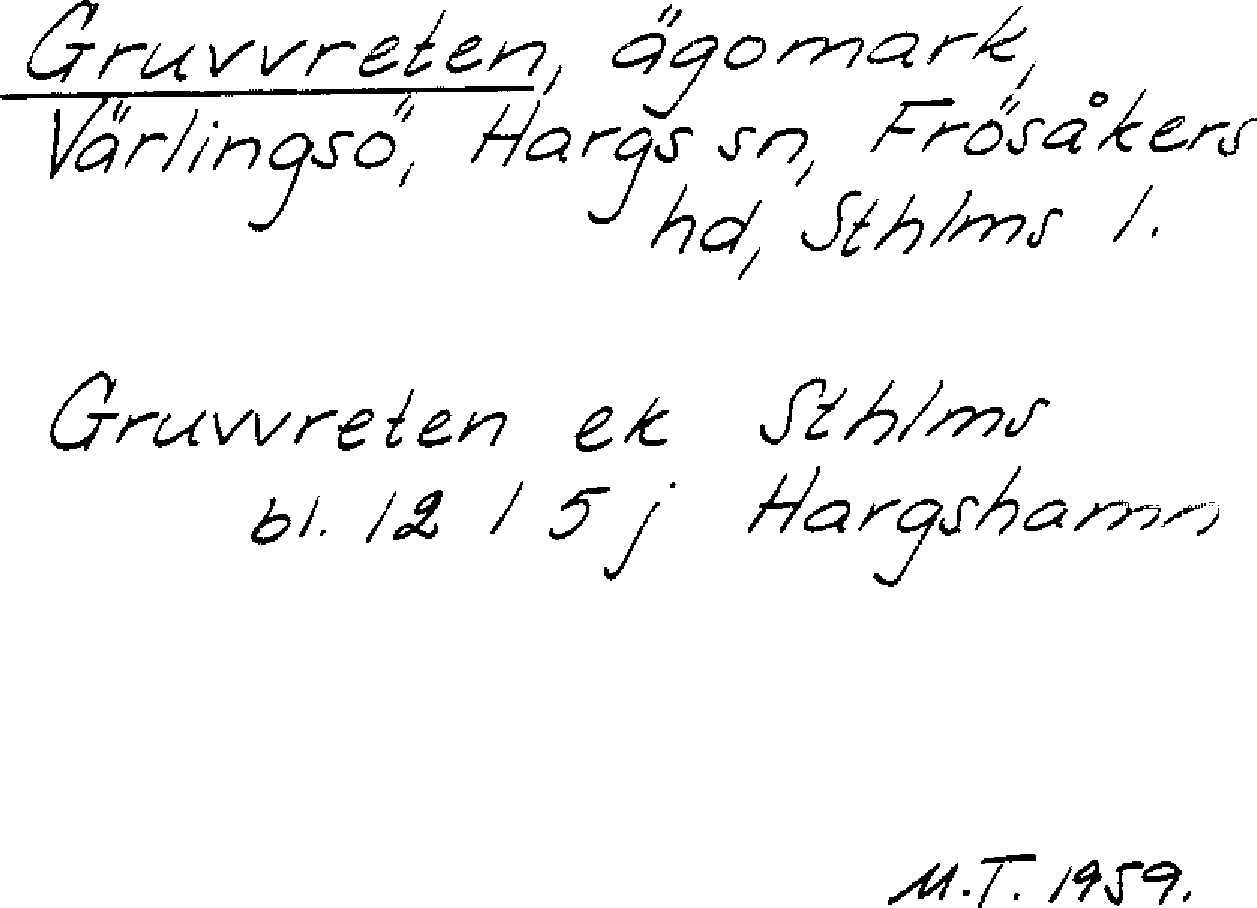 Gruvvreten, ägomark,
Värlingsö, Hargs sn, Frösåkers
hd, Sthlms l.
Gruvvreten ek Sthlms
bl. 12 I 5 j Hargshamn
M.T. 1959.